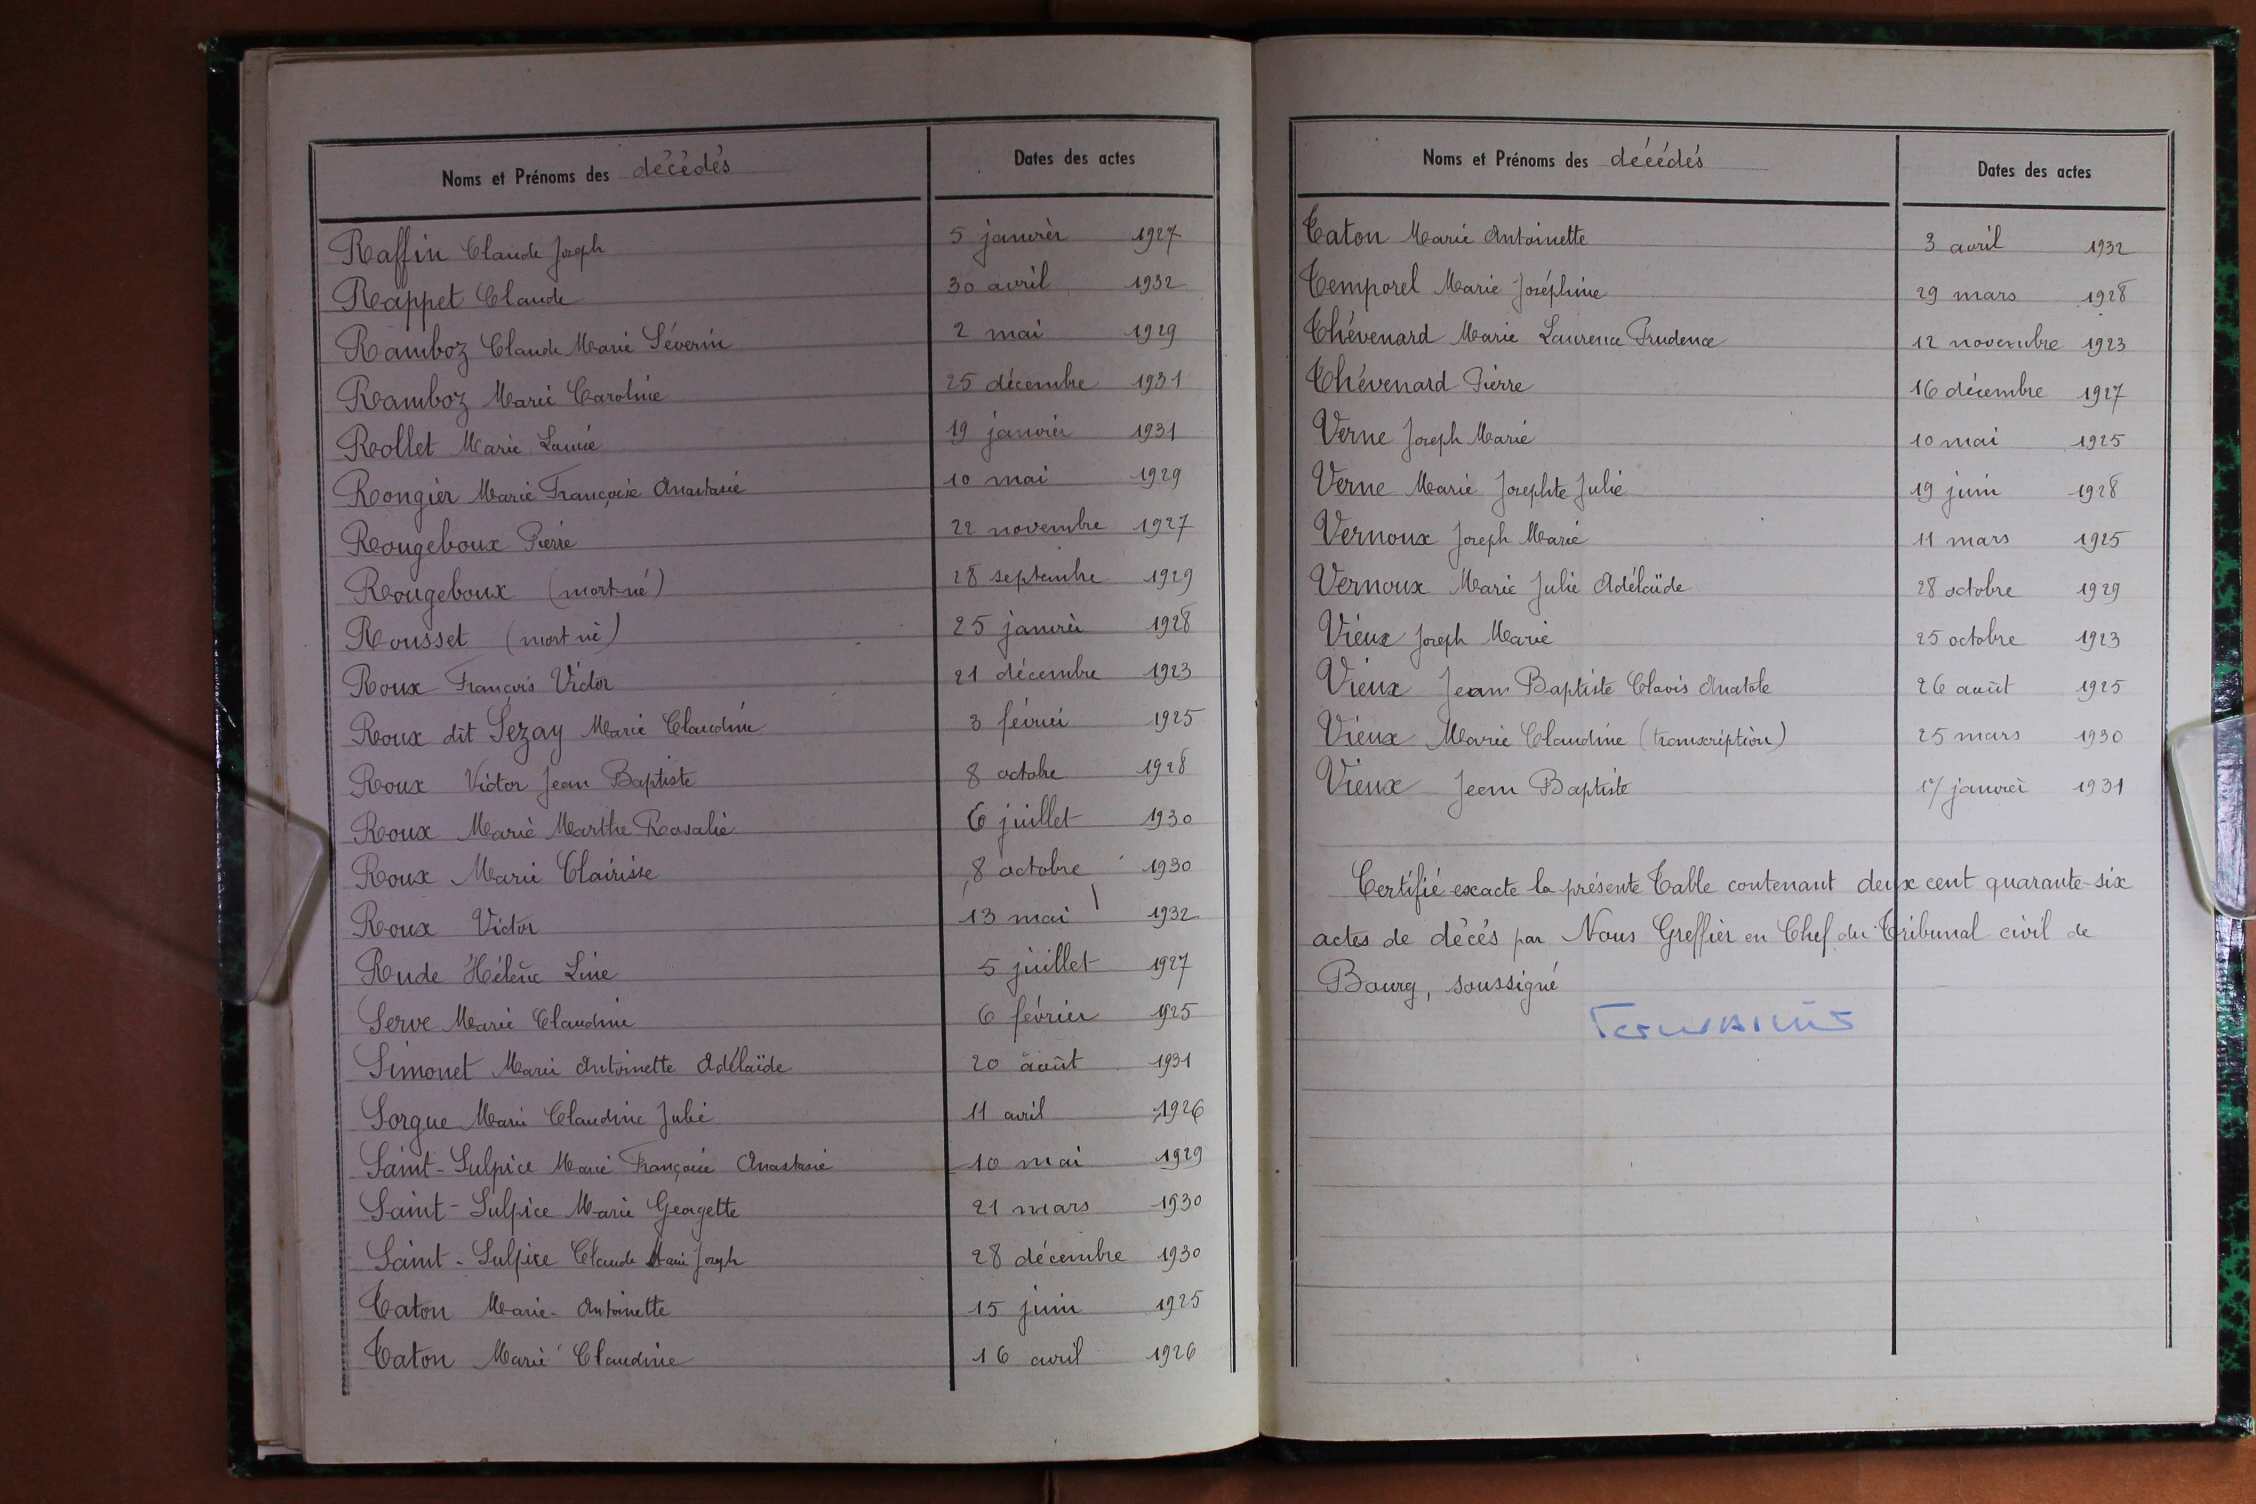 Noms et Prénoms des décédés Dates des actes
Raffin Claude Joseph 5 janvier 1927
Rappet Claude 30 avril 1932
Ramboz Claude Marie Séverin 2 mai 1929
Ramboz Marie Caroline 25 décembre 1931
Rollet Marie 19 janvier 1931
Rongier Marie Françoise Anastasie 10 mai 1929
Rougeboux Pierre 22 novembre 1927
Rougeboux (mort-né) 28 septembre 1929
Rousset (mort né) 25 janvier 1928
Roux François Victor 21 décembre 1923
Roux dit Sezay Marie Claudine 3 février 1925
Roux Victor Jean Baptiste 8 octobre 1928
Roux Marie Marthe Rosalie 6 juillet 1930
Roux Marie Clairisse 8 octobre 1930
Roux Victor 13 mai 1932
Rude Hélène Line 5 juillet 1927
Serve Marie Claudine 6 février 1925
Simonet Marie Antoinette Adélaïde 20 août 1931
Sorgue Marie Claudine Julie 11 avril 1926
Saint-Sulpice Marie Françoise Anastasie 10 mai 1929
Saint-Sulpice Marie Georgette 21 mars 1930
Saint-Sulpice Claude Marie Joseph 28 décembre 1930
Taton Marie-Antoinette 15 juin 1925
Taton Marie Claudine 16 avril 1926
Noms et Prénoms des décédés Dates des actes
Taton Marie Antoinette 3 avril 1932
Temporel Marie Joséphine 29 mars 1928
Thévenard Marie Laurence Prudence 12 novembre 1923
Thévenard Pierre 16 décembre 1927
Verne Joseph Marie 10 mai 1925
Verne Marie Josephte Julie 19 juin 1928
Vernoux Joseph Marie 11 mars 1925
Vernoux Marie Julie Adélaïde 28 octobre 1929
Vieux Joseph Marie 25 octobre 1923
Vieux Jean Baptiste Clovis Anatole 26 août 1925
Vieux Marie Claudine (transcription) 25 mars 1930
Vieux Jean Baptiste 17 janvier 1931
Certifié exacte la présente Table contenant deux cent quarante-six
actes de décès par Nous Greffier en Chef du Tribunal civil de
Bourg, soussigné